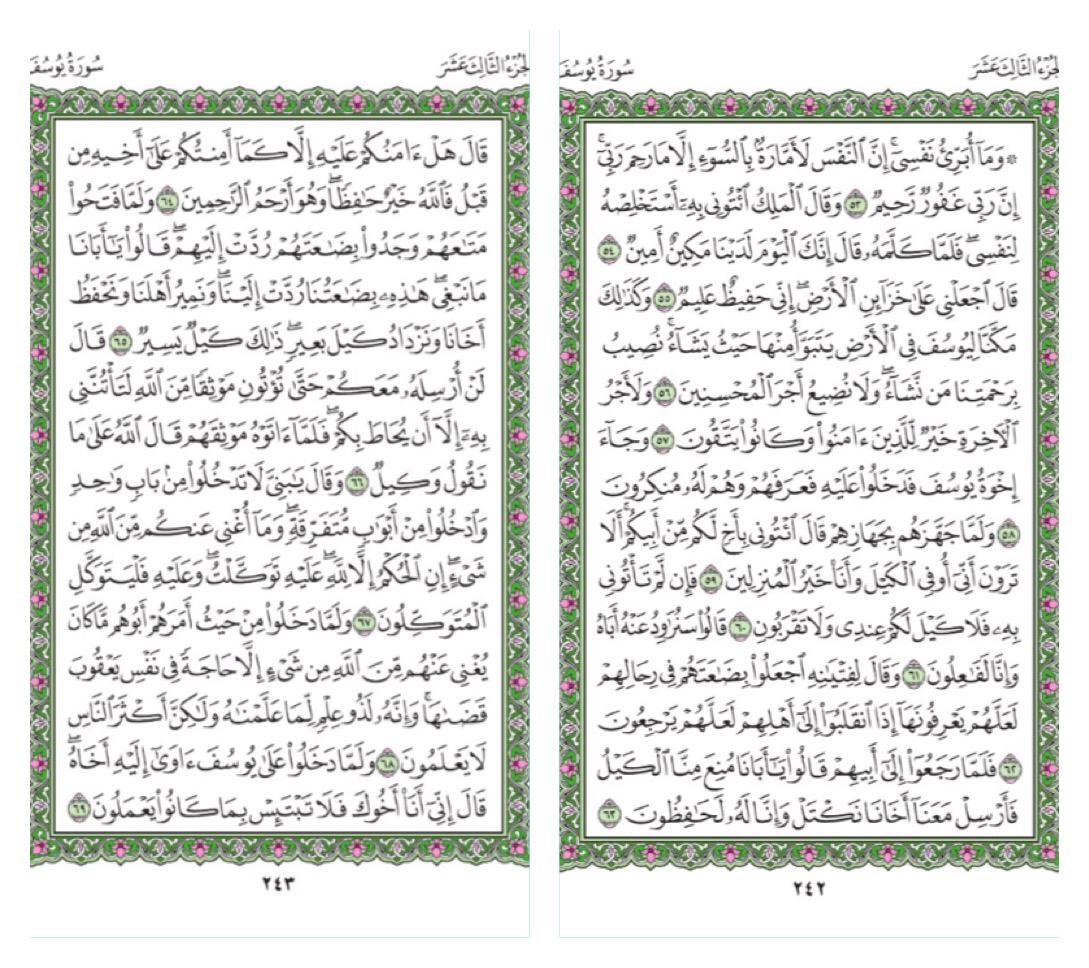 الجزء الثالث عشر
سورة يوسف
۞ وَمَآ أُبَرِّئُ نَفْسِيٓۚ إِنَّ ٱلنَّفْسَ لَأَمَّارَةُۢ بِٱلسُّوٓءِ إِلَّا مَا رَحِمَ رَبِّيٓۚ
إِنَّ رَبِّي غَفُورٞ رَّحِيمٞ ٥٣ وَقَالَ ٱلۡمَلِكُ ٱئۡتُونِي بِهِۦٓ أَسۡتَخۡلِصۡهُ
لِنَفۡسِيۖ فَلَمَّا كَلَّمَهُۥ قَالَ إِنَّكَ ٱلۡيَوۡمَ لَدَيۡنَا مَكِينٌ أَمِينٞ ٥٤
قَالَ ٱجۡعَلۡنِي عَلَىٰ خَزَآئِنِ ٱلۡأَرۡضِۖ إِنِّي حَفِيظٌ عَلِيمٞ ٥٥ وَكَذَٰلِكَ
مَكَّنَّا لِيُوسُفَ فِي ٱلۡأَرۡضِ يَتَبَوَّأُ مِنۡهَا حَيۡثُ يَشَآءُۚ نُصِيبُ
بِرَحۡمَتِنَا مَن نَّشَآءُۖ وَلَا نُضِيعُ أَجۡرَ ٱلۡمُحۡسِنِينَ ٥٦ وَلَأَجۡرُ
ٱلۡأٓخِرَةِ خَيۡرٞ لِّلَّذِينَ ءَامَنُواْ وَكَانُواْ يَتَّقُونَ ٥٧ وَجَآءَ
إِخۡوَةُ يُوسُفَ فَدَخَلُواْ عَلَيۡهِ فَعَرَفَهُمۡ وَهُمۡ لَهُۥ مُنكِرُونَ
٥٨ وَلَمَّا جَهَّزَهُم بِجَهَازِهِمۡ قَالَ ٱئۡتُونِي بِأَخٖ لَّكُم مِّنۡ أَبِيكُمۡۚ أَلَا
تَرَوۡنَ أَنِّيٓ أُوفِي ٱلۡكَيۡلَ وَأَنَا۠ خَيۡرُ ٱلۡمُنزِلِينَ ٥٩ فَإِن لَّمۡ تَأۡتُونِي
بِهِۦ فَلَا كَيۡلَ لَكُمۡ عِندِي وَلَا تَقۡرَبُونِ ٦٠ قَالُواْ سَنُرَٰوِدُ عَنۡهُ أَبَاهُ
وَإِنَّا لَفَٰعِلُونَ ٦١ وَقَالَ لِفِتۡيَٰنِهِ ٱجۡعَلُواْ بِضَٰعَتَهُمۡ فِي رِحَالِهِمۡ
لَعَلَّهُمۡ يَعۡرِفُونَهَآ إِذَا ٱنقَلَبُوٓاْ إِلَىٰٓ أَهۡلِهِمۡ لَعَلَّهُمۡ يَرۡجِعُونَ
٦٢ فَلَمَّا رَجَعُوٓاْ إِلَىٰٓ أَبِيهِمۡ قَالُواْ يَٰٓأَبَانَا مُنِعَ مِنَّا ٱلۡكَيۡلُ
فَأَرۡسِلۡ مَعَنَآ أَخَانَا نَكۡتَلۡ وَإِنَّا لَهُۥ لَحَٰفِظُونَ ٦٣
٢٤٢
الجزء الثالث عشر
سورة يوسف
قَالَ هَلۡ ءَامَنُكُمۡ عَلَيۡهِ إِلَّا كَمَآ أَمِنتُكُمۡ عَلَىٰٓ أَخِيهِ مِن
قَبۡلُ فَٱللَّهُ خَيۡرٌ حَٰفِظٗاۖ وَهُوَ أَرۡحَمُ ٱلرَّٰحِمِينَ ٦٤ وَلَمَّا فَتَحُواْ
مَتَٰعَهُمۡ وَجَدُواْ بِضَٰعَتَهُمۡ رُدَّتۡ إِلَيۡهِمۡۖ قَالُواْ يَٰٓأَبَانَا
مَا نَبۡغِيۖ هَٰذِهِۦ بِضَٰعَتُنَا رُدَّتۡ إِلَيۡنَاۖ وَنَمِيرُ أَهۡلَنَا وَنَحۡفَظُ
أَخَانَا وَنَزۡدَادُ كَيۡلَ بَعِيرٖۖ ذَٰلِكَ كَيۡلٞ يَسِيرٞ ٦٥ قَالَ
لَنۡ أُرۡسِلَهُۥ مَعَكُمۡ حَتَّىٰ تُؤۡتُونِ مَوۡثِقٗا مِّنَ ٱللَّهِ لَتَأۡتُنَّنِي
بِهِۦٓ إِلَّآ أَن يُحَاطَ بِكُمۡۖ فَلَمَّآ ءَاتَوۡهُ مَوۡثِقَهُمۡ قَالَ ٱللَّهُ عَلَىٰ مَا
نَقُولُ وَكِيلٞ ٦٦ وَقَالَ يَٰبَنِيَّ لَا تَدۡخُلُواْ مِنۢ بَابٖ وَٰحِدٖ
وَٱدۡخُلُواْ مِنۡ أَبۡوَٰبٖ مُّتَفَرِّقَةٖۖ وَمَآ أُغۡنِي عَنكُم مِّنَ ٱللَّهِ مِن
شَيۡءٍۖ إِنِ ٱلۡحُكۡمُ إِلَّا لِلَّهِۖ عَلَيۡهِ تَوَكَّلۡتُۖ وَعَلَيۡهِ فَلۡيَتَوَكَّلِ
ٱلۡمُتَوَكِّلُونَ ٦٧ وَلَمَّا دَخَلُواْ مِنۡ حَيۡثُ أَمَرَهُمۡ أَبُوهُم مَّا كَانَ
يُغۡنِي عَنۡهُم مِّنَ ٱللَّهِ مِن شَيۡءٍ إِلَّا حَاجَةٗ فِي نَفۡسِ يَعۡقُوبَ
قَضَىٰهَاۚ وَإِنَّهُۥ لَذُو عِلۡمٖ لِّمَا عَلَّمۡنَٰهُ وَلَٰكِنَّ أَكۡثَرَ ٱلنَّاسِ
لَا يَعۡلَمُونَ ٦٨ وَلَمَّا دَخَلُواْ عَلَىٰ يُوسُفَ ءَاوَىٰٓ إِلَيۡهِ أَخَاهُۖ
قَالَ إِنِّيٓ أَنَا۠ أَخُوكَ فَلَا تَبۡتَئِسۡ بِمَا كَانُواْ يَعۡمَلُونَ ٦٩
٢٤٣